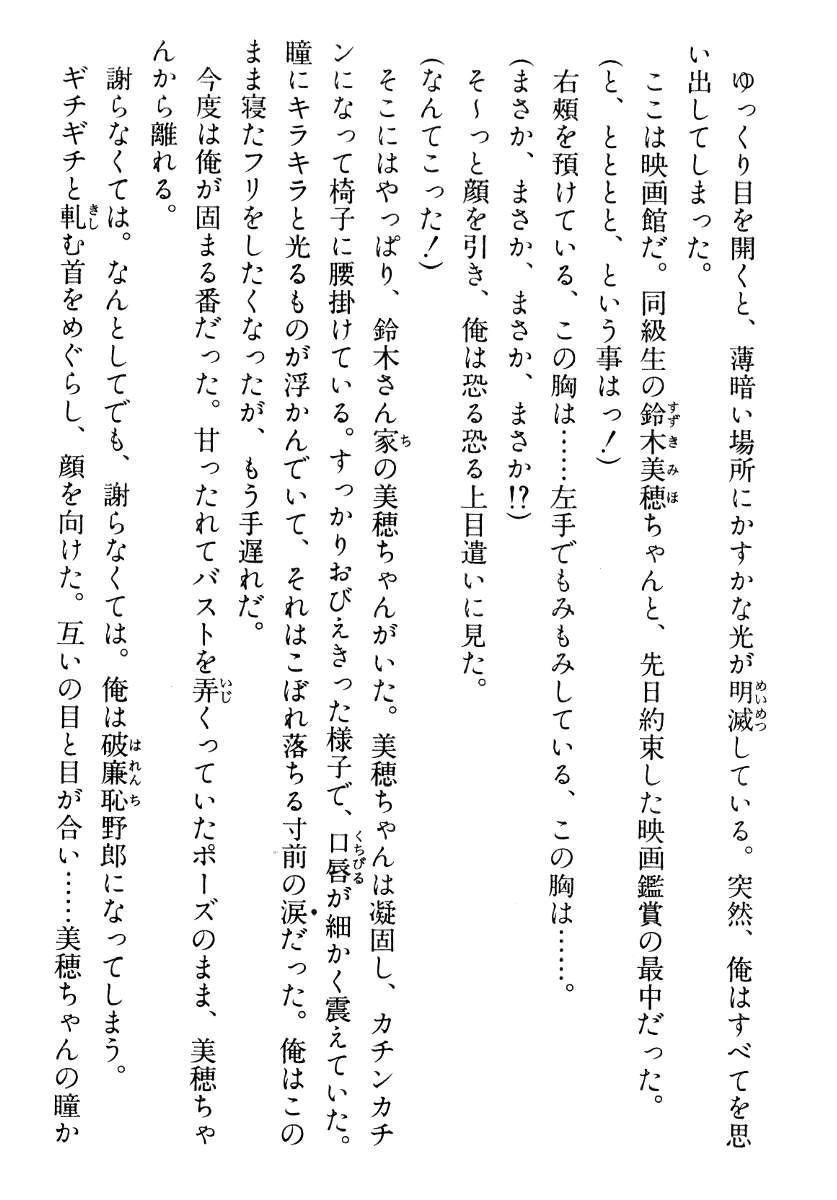 ゆっくり目を開くと、薄暗い場所にかすかな光が明滅している。突然、俺はすべてを思
い出してしまった。
ここは映画館だ。同級生の鈴木美穂ちゃんと、先日約束した映画鑑賞の最中だった。
(と、とととと、という事はっ!)
右頰を預けている、この胸は……左手でもみもみしている、この胸は……。
(まさか、まさか、まさか、まさか!?)
そ〜っと顔を引き、俺は恐る恐る上目遣いに見た。
(なんてこった!)
そこにはやっぱり、鈴木さん家の美穂ちゃんがいた。美穂ちゃんは凝固し、カチンカチ
ンになって椅子に腰掛けている。すっかりおびえきった様子で、口唇が細かく震えていた。
瞳にキラキラと光るものが浮かんでいて、それはこぼれ落ちる寸前の涙だった。俺はこの
まま寝たフリをしたくなったが、もう手遅れだ。
今度は俺が固まる番だった。甘ったれてバストを弄くっていたポーズのまま、美穂ちゃ
んから離れる。
謝らなくては。なんとしてでも、謝らなくては。俺は破廉恥野郎になってしまう。
ギチギチと軋む首をめぐらし、顔を向けた。互いの目と目が合い……美穂ちゃんの瞳か